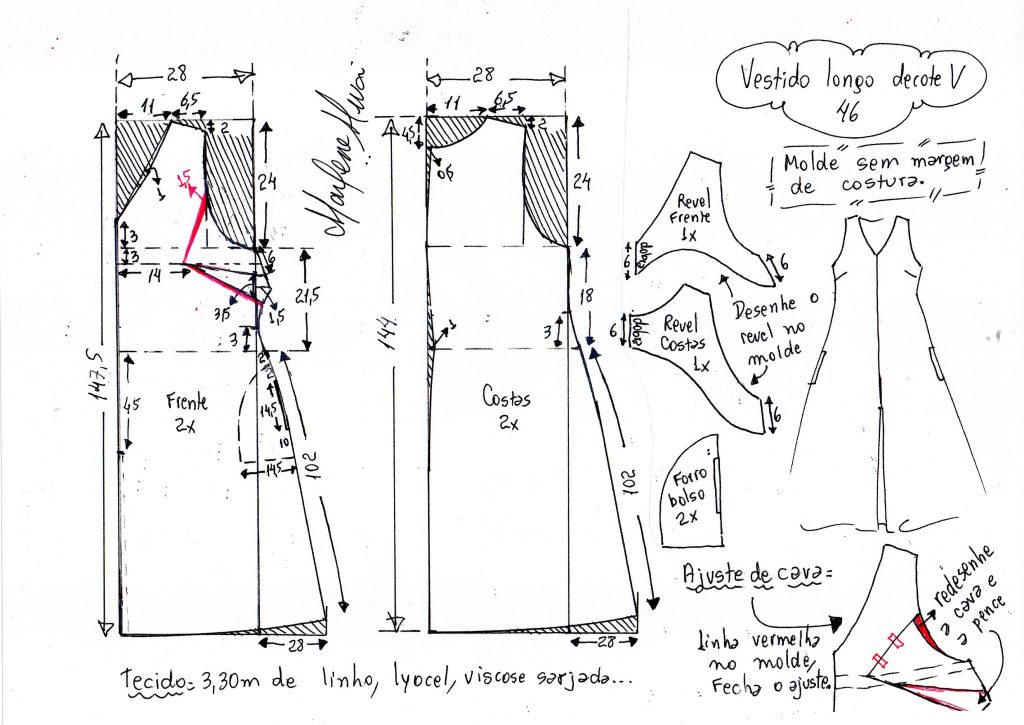 Vestido longo decote V
46
Molde sem margem
de costura.
28
11
6,5
2
24
1
1,5
3
3
14
6
3,5
1,5
21,5
3
2
147,5
45
Frente
2x
14,5
10
14,5
102
28
Marlene Mukai
28
11
6,5
4,5
2
0,5
24
18
3
1
144
Costas
2x
102
28
Revel
Frente
1x
dobra
6
6
Revel
Costas
1x
dobra
6
6
Desenhe o
revel no
molde
Forro
bolso
2x
Ajuste de cava=
Linha vermelha
no molde,
Fecha o ajuste.
redesenhe
a cava e
a pence
Tecido= 3,30m de linho, lyocel, viscose sarjada...